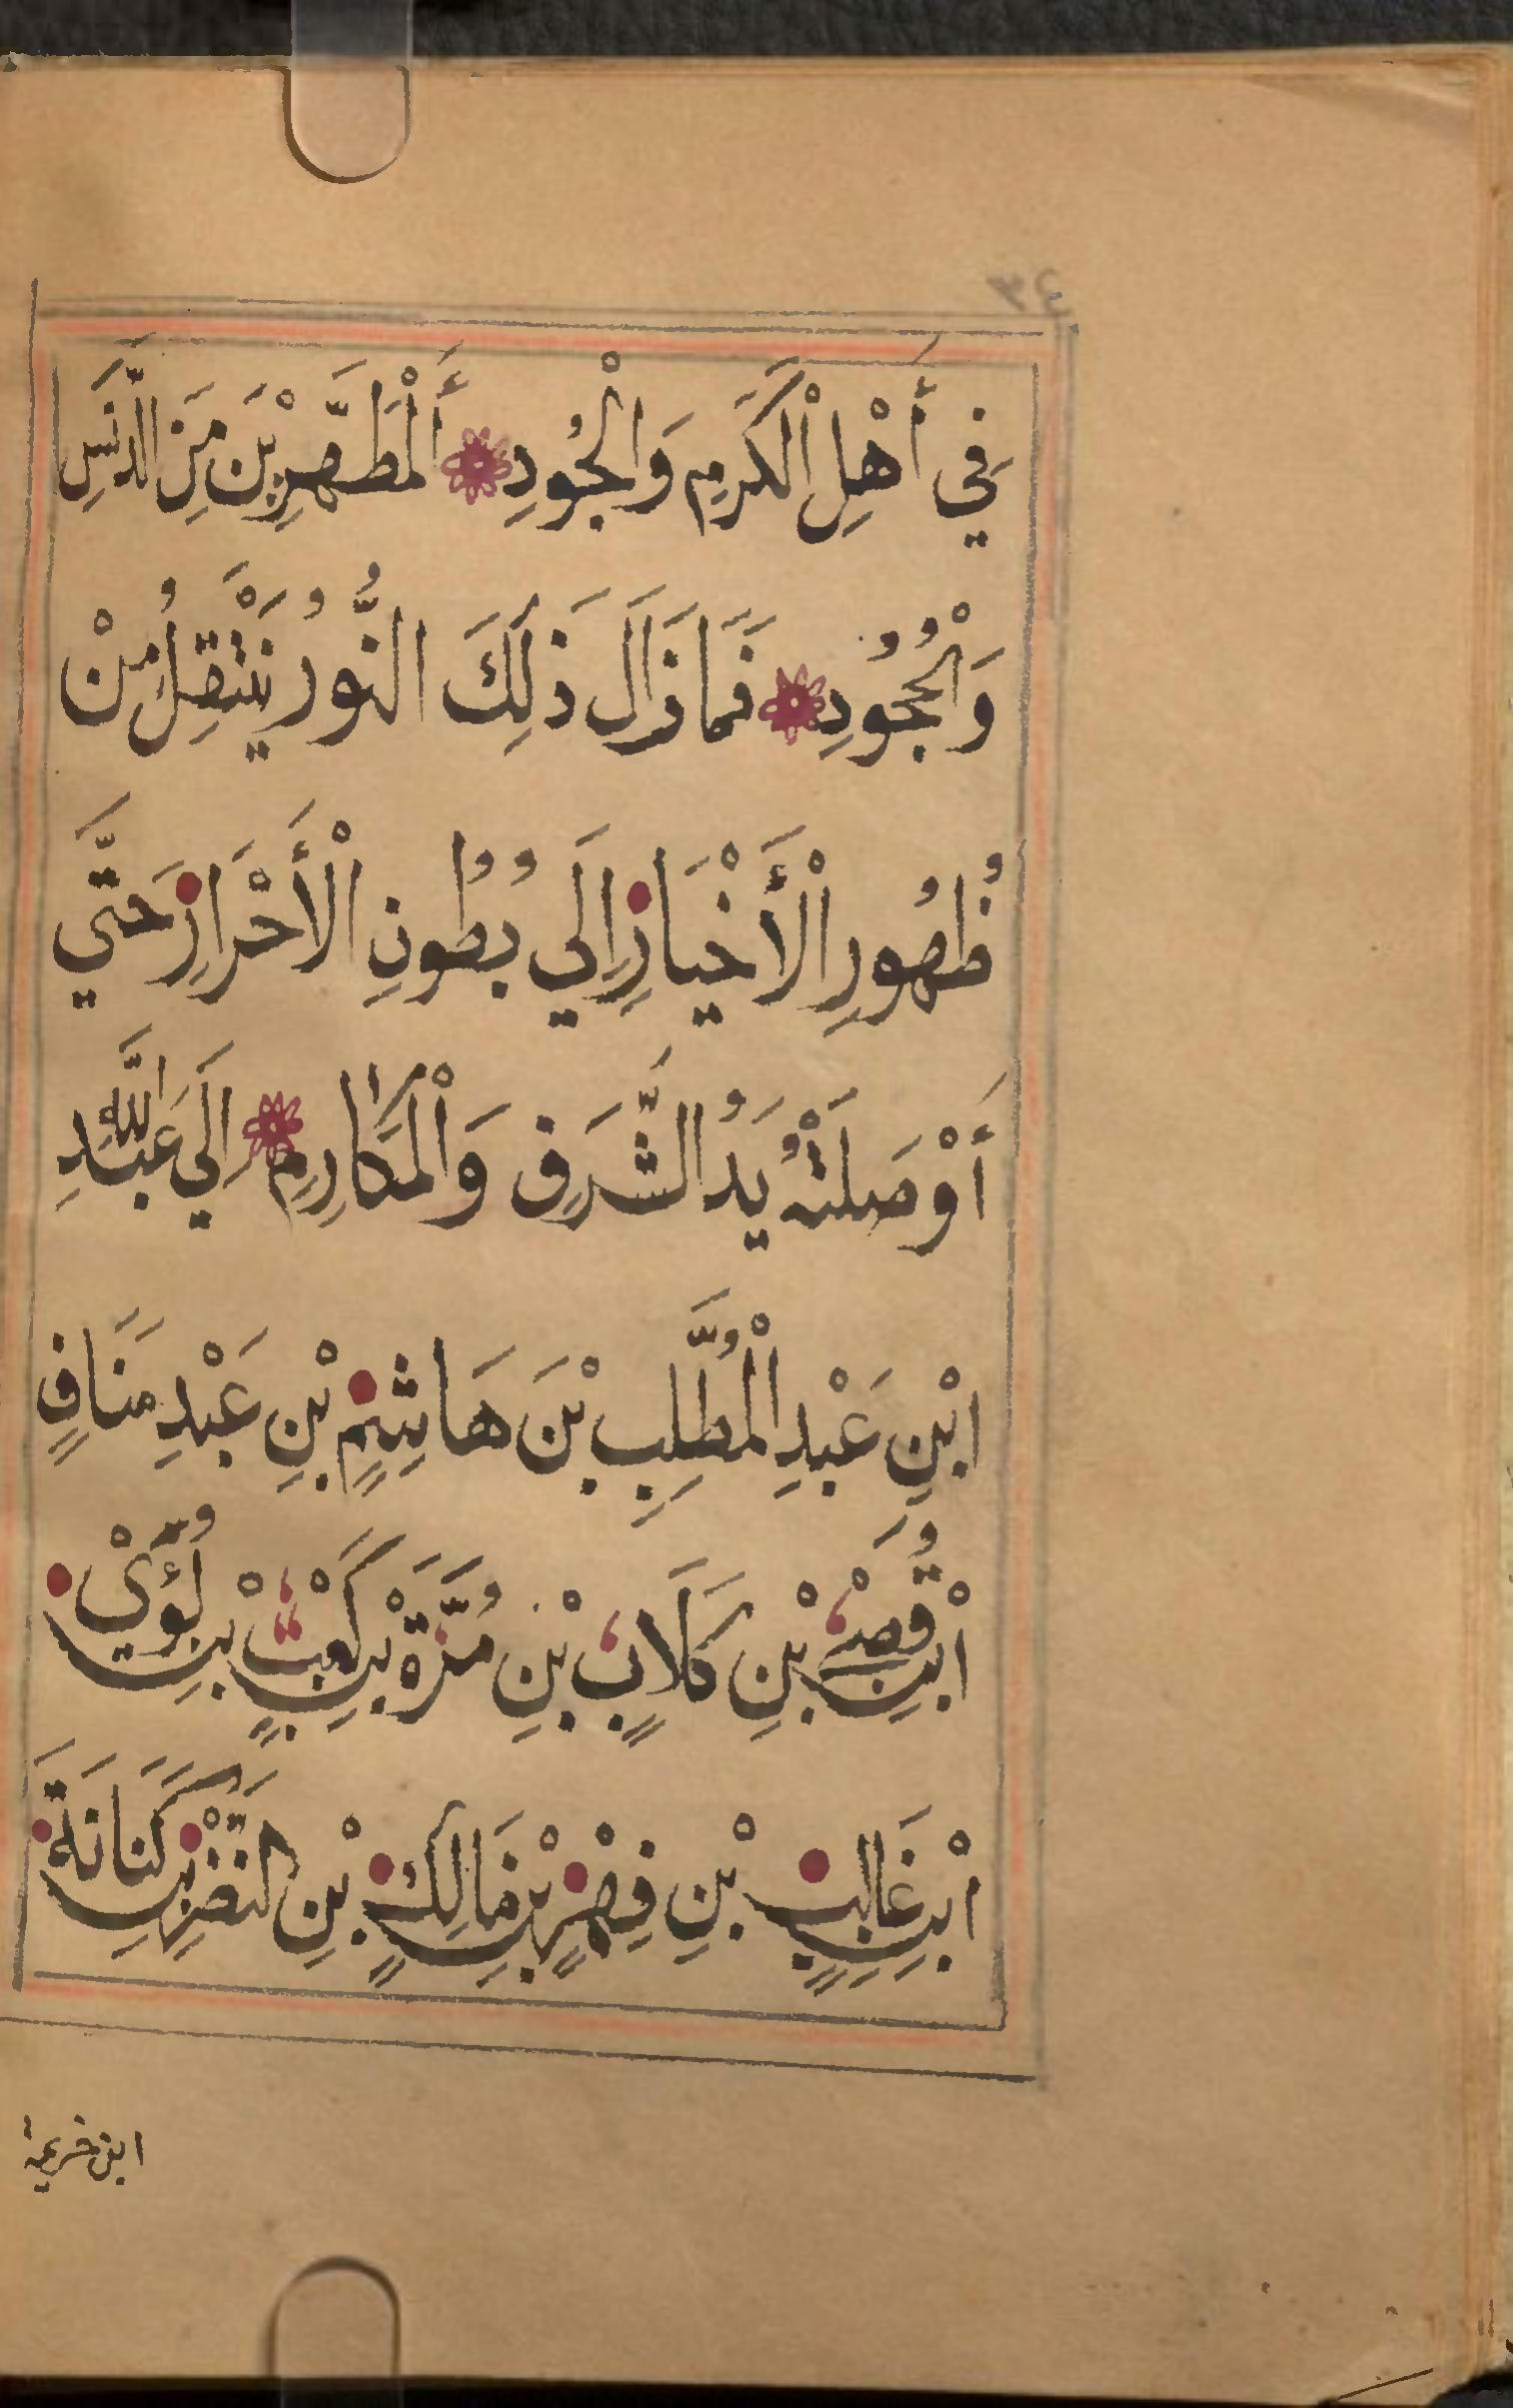 فِي أَهْلِ الْكَرَمِ وَالْجُودِ أَلْمُطَهَّرِيْنَ مِنَ الدَّنَسِ
وَالْجُحُودِ فَمَا زَالَ ذٰلِكَ النُّورُ يَنْتَقِلُ مِنْ
ظُهُورِ الْأَخْيَارِ اِلَي بُطُونِ الْأَحْرَارِ حَتَّي
أَوْصَلَتْهُ يَدُ الشَّرَفِ وَالْمَكَارِمِ اِلَي عَبْدِ اللَّهِ
ابْنِ عَبْدِ الْمُطَّلِبِ بْنِ هَاشِمٍ بْنِ عَبْدِ مَنَافٍ
ابْنِ قُصَيْ بْنِ كَلَابٍ بْنِ مُرَّةَ بْنِ كَعْبٍ بْنِ لُؤَيْ
ابْنِ غَالِبٍ بْنِ فِهْرٍ بْنِ مَالِكٍ بْنِ النَّضْرِ بْنِ كَنَانَةَ
ابن خزيمة